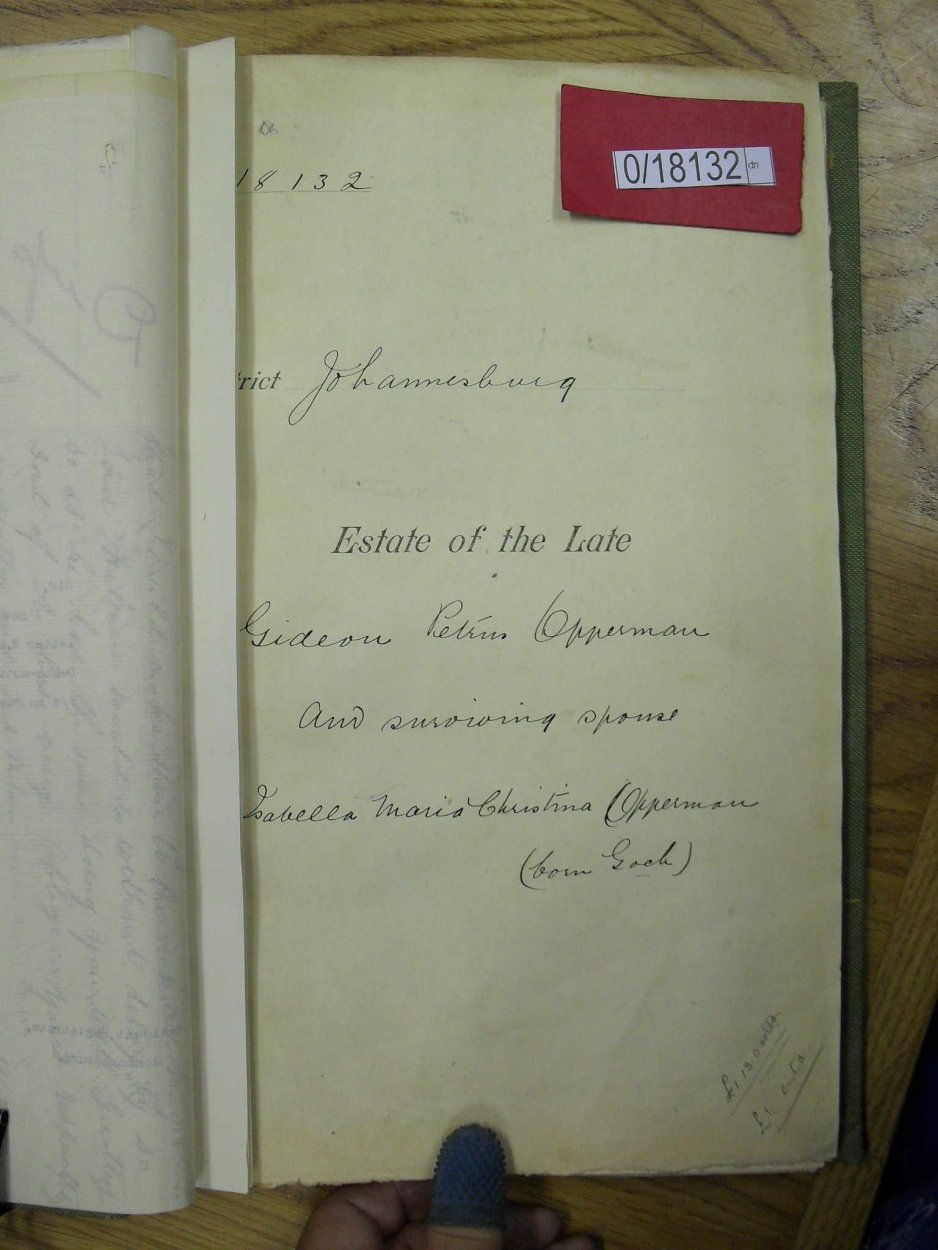 0/18132 dn
18132
rict Johannesburg
Estate of the Late
Gideon Petrus Opperman
And surviving spouse
Isabella Maria Christina Opperman
(born Goch)
£1